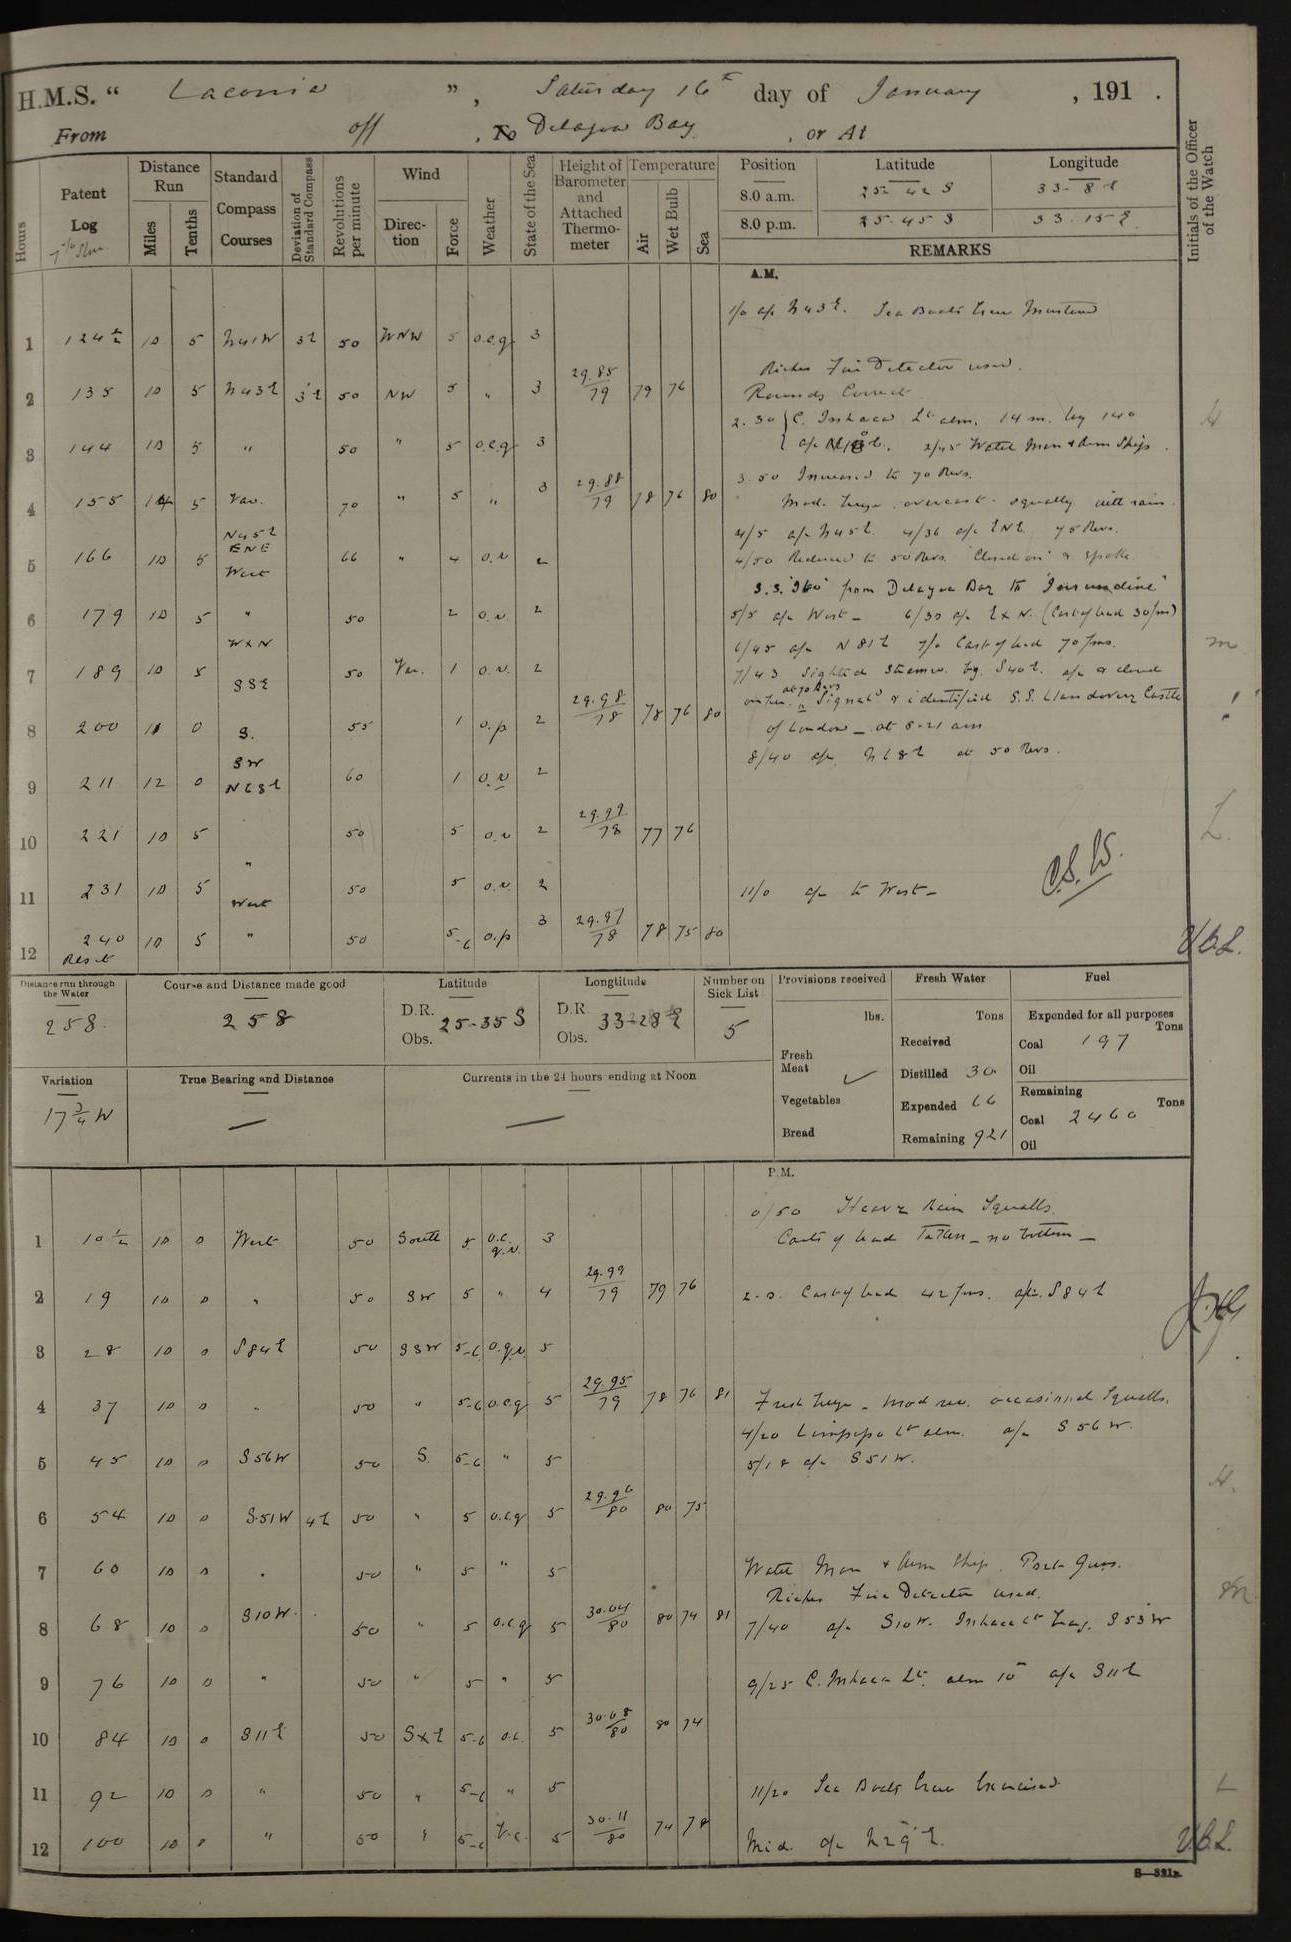 H.M.S. “ Laconia ” , Saturday 16th day of January , 191 .
From off , To Delagoa Bay , or At
Hours
Patent Log
Distance Run
Miles
Tenths
Standard Compass Courses
Deviation of Standard Compass
Revolutions per minute
Wind
Direction
Force
Weather
State of the Sea
Height of Barometer and Attached Thermometer
Temperature
Air
Wet Bulb
Sea
Position Latitude Longitude
8.0 a.m. 25-42 S 33-8 E
8.0 p.m. 25.45 S 33.15 E
REMARKS
Initials of the Officer of the Watch
A.M.
1/0 a/c N43E. Sea Boats Crew Mustered
1 124½ 10 5 N41W 3E 50 WNW 5 o.c.q 3
Riches Fire Detector used.
2 135 10 5 N43E 3E 50 NW 5 " 3 29.85/79 79 76
Rounds Correct
2.30 C. Inhaca Lt abm. 14 m. by 140
3 144 10 5 " 50 " 5 o.c.q 3
2/45 Water Man & Arm Ships.
3.50 Increased to 70 Revs.
4 155 14 5 Var. 70 " 5 " 3 29.88/79 78 76 80
Mod. breeze. overcast. squally with rain.
4/5 a/c N45E. 4/36 a/c ENE 75 Revs.
N45E
ENE
5 166 10 5 West 66 " 4 o.v 2
4/50 Reduced to 50 Revs. Closed on & spoke
S.S. from Delagoa Bay to
6 179 10 5 " 50 2 o.v. 2
5/5 a/c West - 6/30 a/c E x N. (Cast of lead 30 fms)
WxN
6/45 a/c N81E 7/0 Cast of lead 70 fms.
7 189 10 5 50 Var. 1 o.v. 2
SSE
7/43 Sighted Steamer bg. S40E. a/c & closed
on her. at 70 Revs Signal & identified S.S. Llandovery Castle
8 200 11 0 S. 55 1 o.p 2 29.98/78 78 76 80
of London - at 8-21 am
SW
8/40 a/c N68E at 50 Revs.
9 211 12 0 N68E 60 1 o.v 2
10 221 10 5 50 5 o.v 2 29.99/78 77 76
"
11 231 10 5 50 5 o.v. 2
West
11/0 a/c to West -
C.S.W.
12 240 10 5 " 50 5-6 o.p 3 29.97/78 78 75 80
Reset
Distance run through the Water
258.
Course and Distance made good
258
Latitude
D.R. 25-35 S
Obs.
Longtitude
D.R. 33-28 E
Obs.
Number on Sick List
5
Provisions received
lbs.
Fresh Meat
Vegetables
Bread
Fresh Water
Tons
Received
Distilled 30
Expended 66
Remaining 921
Fuel
Expended for all purposes
Tons
Coal 197
Oil
Remaining
Tons
Coal 2460
Oil
Variation
17¾ W
True Bearing and Distance
—
Currents in the 24 hours ending at Noon
—
P.M.
0/50 Heavy Rain Squalls.
1 10½ 10 0 West 50 South 5 o.c. q.v. 3
Casts of lead Taken - no bottom -
2 19 10 0 " 50 SW 5 " 4 29.99/79 79 76
2.0. Cast of lead 42 fms. a/c. S84E
3 28 10 0 S84E 50 SSW 5-6 o.q.v. 5
4 37 10 0 " 50 " 5-6 o.c.q 5 29.95/79 78 76 81
Fresh breeze - Mod sea. occasional Squalls.
4/20 Limpopo Lt abm. a/c S56W.
5 45 10 0 S56W 50 S. 5-6 " 5
5/18 a/c S51W.
6 54 10 0 S.51W 4E 50 " 5 o.c.q 5 29.96/80 80 75
7 60 10 0 " 50 " 5 " 5
Water Man & Arm Ship. Port Guns.
Riches Fire Detector used.
8 68 10 0 S10W. 50 " 5 o.c.q 5 30.04/80 80 74 81
7/40 a/c S10W. Inhaca Lt brg. S53W
9 76 10 0 " 50 " 5 " 5
9/25 C. Inhaca Lt. abm 10m a/c S11E
10 84 10 0 S11E 50 SxE 5-6 o.c. 5 30.08/80 80 74
11 92 10 0 " 50 " 5-6 " 5
11/20 Sea Boats Crew Exercised.
12 100 10 0 " 50 " 5-6 b.c. 5 30.11/80 74 78
Mid. a/c N29E.
V.B.L.
S—321a.